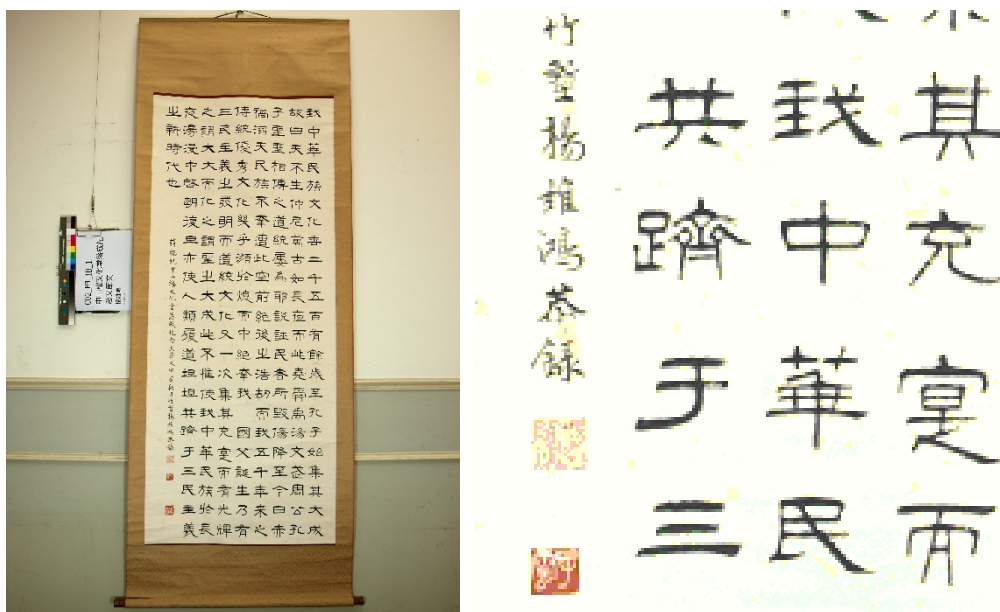 我中華民族文化垂二千五百有餘歲至孔子始集其大成
故曰天不生仲尼萬古如長夜而此堯舜禹湯文武周公孔
子聖聖相傳之道統屢為邪說誣民者所毀傷降至今日赤
禍滔天民族不幸遭此空前絕後之浩劫而我五千年來之
傳統優秀文化幾乎瀕於熄而中絕幸我 國父誕生乃有
三民主義之發明而道統文化又一次集其充寔而有光輝
之謂大大而化之謂聖之大成此不惟使我中華民族於長
夜漫漫中啓明復旦亦使人類履道坦坦共躋于三民主義
之新時代也
C02_PT_18_1
其充寔而
我中華民
共躋于三
竹塹楊雄鴻恭錄